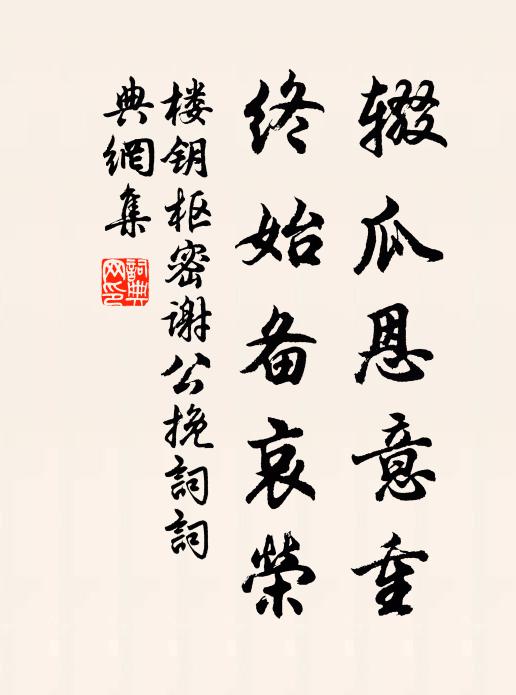 辍瓜恩意重
终始备哀榮
楼钥枢密谢公挽詞詞
典網集
詞典
网印